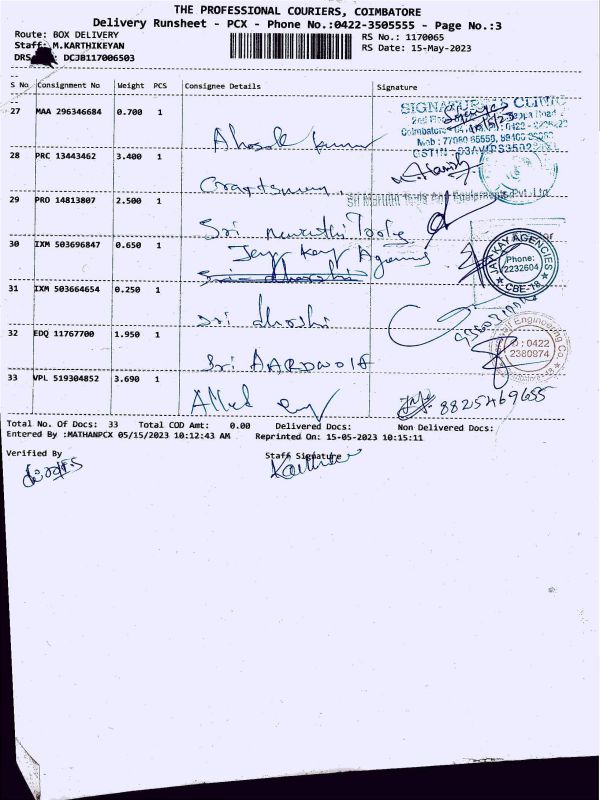 THE PROFESSIONAL COURIERS, COIMBATORE
Delivery Runsheet - PCX - Phone No.:0422-3505555 - Page No.:3
Route: BOX DELIVERY
RS No.: 1170065
Staff: M.KARTHIKEYAN
RS Date: 15-May-2023
DRS DCJB117006503
S No Consignment No Weight PCS Consignee Details Signature
27 MAA 296346684 0.700 1
SIGNATURE CLINIC
28 PRC 13443462 3.400 1
29 PRO 14813807 2.500 1
Sri Maruthi Tools
30 IXM 503696847 0.650 1
Jay Kay Agencies
JAY KAY AGENCIES
Phone:
2232604
CBE-18
31 IXM 503664654 0.250 1
Sri dhoshi
32 EDQ 11767700 1.950 1
Sri AARDWOLF
Engineering Co
: 0422
2380974
33 VPL 519304852 3.690 1
Allied
8825469655
Total No. Of Docs: 33 Total COD Amt: 0.00 Delivered Docs: Non Delivered Docs:
Entered By :MATHANPCX 05/15/2023 10:12:43 AM Reprinted On: 15-05-2023 10:15:11
Verified By
Staff Signature